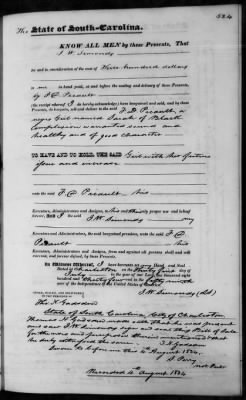 524
The State of South-Carolina.
KNOW ALL MEN by these Presents, That
I J. W. Simonds
for and in consideration of the sum of Three hundred dollars
to me in hand paid, at and before the sealing and delivery of these Presents,
by F. C. Perault
(the receipt whereof I do hereby acknowledge) have bargained and sold, and by these
Presents, do bargain, sell and deliver to the said F. C. Perault, a
negro Girl named Sarah of Black
Complexion warranted sound and
healthy and of good character
TO HAVE AND TO HOLD, THE SAID Girl with her future
issue and increase
unto the said F. C. Perault his
Executors, Administrators and Assigns, to his and their proper use and behoof
forever. And I the said J. W. Simonds my
Executors and Administrators, the said bargained premises, unto the said F. C.
Perault his
Executors, Administrators and Assigns, from and against all persons shall and will
warrant, and forever defend, by these Presents.
In Witness Whereof, I have hereunto set my Hand and Seal
Dated at Charleston on the Thirty first day of
in the year of our Lord, one thousand eight
hundred and Thirty and in the fifty ninth
year of the Independence of the United States of America.
SIGNED, SEALED, AND DELIVERED
IN THE PRESENCE OF
J. W. Simonds (LS)
Thos. H. Gadsden
State of South Carolina City of Charleston
Thomas H. Gadsden made oath that he was present
and saw J. W. Simonds sign and seal this Bill of Sale
for the uses and purposes therein mentioned that
he duly attested the same. T. H. Gadsden
Sworn to before me this 4th August 1834.
Not. Pub.
Recorded 4th August 1834